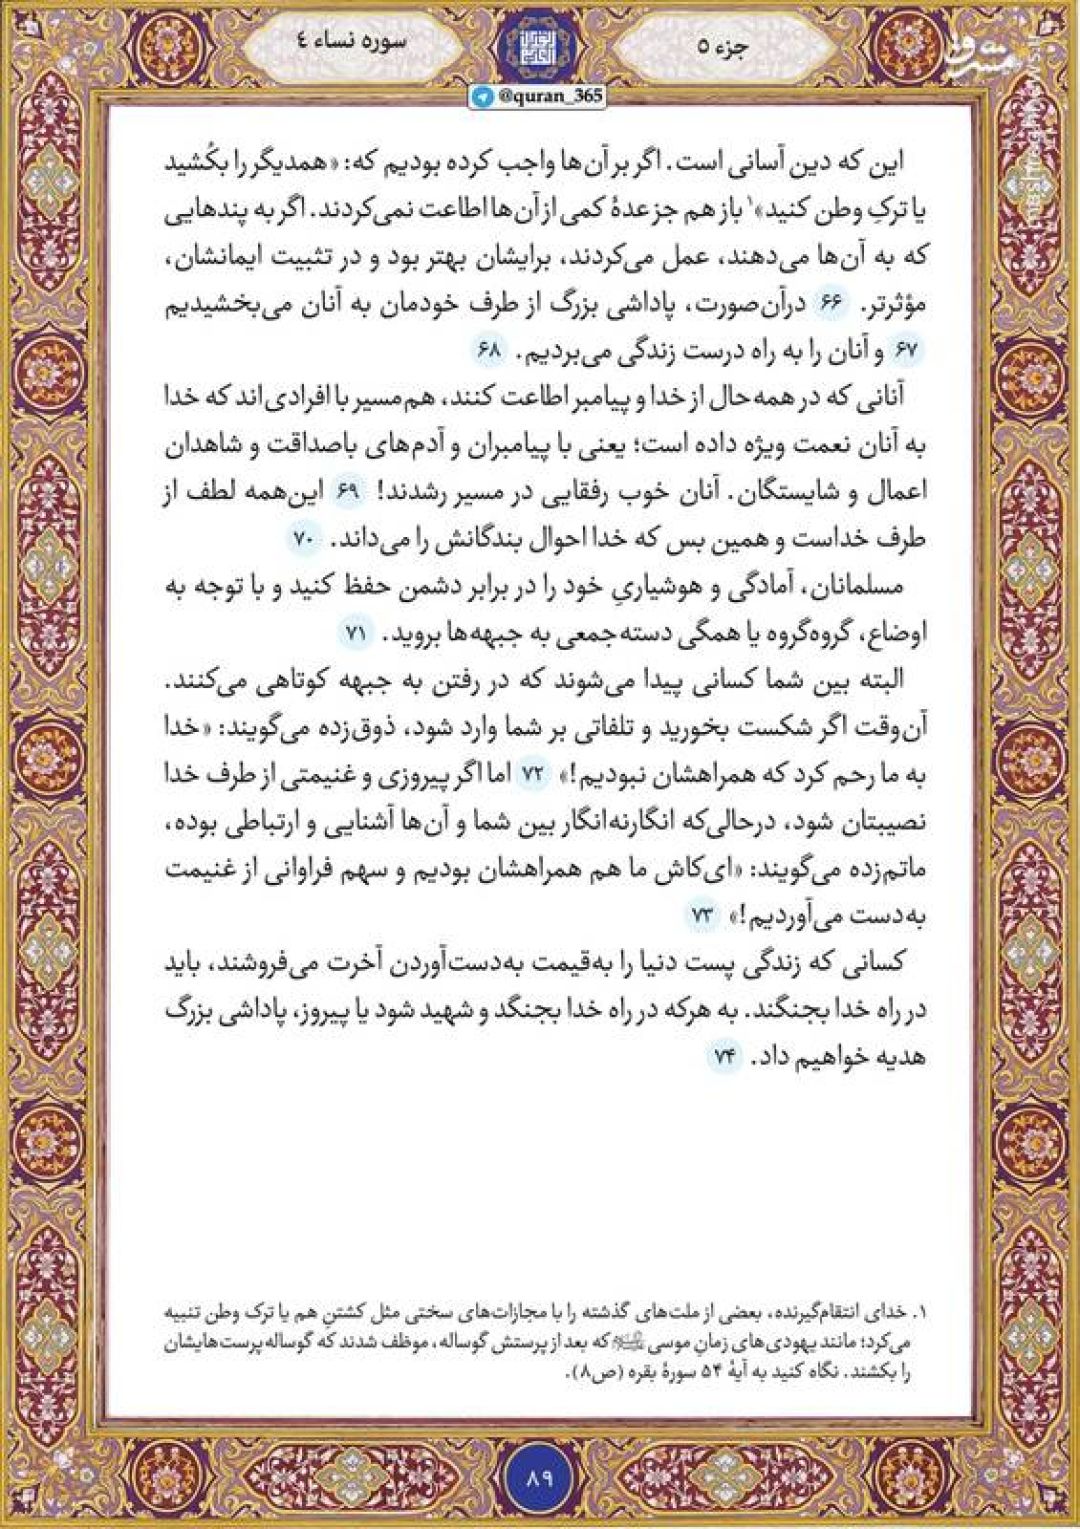 جزء ۵
سوره نساء ٤
مشرق
mashreghnews.ir
@quran_365
این که دین آسانی است. اگر بر آن‌ها واجب کرده بودیم که: «همدیگر را بکُشید
یا ترکِ وطن کنید»۱ باز هم جز عدهٔ کمی از آن‌ها اطاعت نمی‌کردند. اگر به پندهایی
که به آن‌ها می‌دهند، عمل می‌کردند، برایشان بهتر بود و در تثبیت ایمانشان،
مؤثرتر. ۶۶ درآن‌صورت، پاداشی بزرگ از طرف خودمان به آنان می‌بخشیدیم
۶۷ و آنان را به راه درست زندگی می‌بردیم. ۶۸
آنانی که در همه حال از خدا و پیامبر اطاعت کنند، هم‌مسیر با افرادی‌اند که خدا
به آنان نعمت ویژه داده است؛ یعنی با پیامبران و آدم‌های باصداقت و شاهدان
اعمال و شایستگان. آنان خوب رفقایی در مسیر رشدند! ۶۹ این‌همه لطف از
طرف خداست و همین بس که خدا احوال بندگانش را می‌داند. ۷۰
مسلمانان، آمادگی و هوشیاریِ خود را در برابر دشمن حفظ کنید و با توجه به
اوضاع، گروه‌گروه یا همگی دسته‌جمعی به جبهه‌ها بروید. ۷۱
البته بین شما کسانی پیدا می‌شوند که در رفتن به جبهه کوتاهی می‌کنند.
آن‌وقت اگر شکست بخورید و تلفاتی بر شما وارد شود، ذوق‌زده می‌گویند: «خدا
به ما رحم کرد که همراهشان نبودیم!» ۷۲ اما اگر پیروزی و غنیمتی از طرف خدا
نصیبتان شود، درحالی‌که انگارنه‌انگار بین شما و آن‌ها آشنایی و ارتباطی بوده،
ماتم‌زده می‌گویند: «ای‌کاش ما هم همراهشان بودیم و سهم فراوانی از غنیمت
به‌دست می‌آوردیم!» ۷۳
کسانی که زندگی پست دنیا را به‌قیمت به‌دست‌آوردن آخرت می‌فروشند، باید
در راه خدا بجنگند. به هرکه در راه خدا بجنگد و شهید شود یا پیروز، پاداشی بزرگ
هدیه خواهیم داد. ۷۴
۱. خدای انتقام‌گیرنده، بعضی از ملت‌های گذشته را با مجازات‌های سختی مثل کشتنِ هم یا ترک وطن تنبیه
می‌کرد؛ مانند یهودی‌های زمانِ موسی که بعد از پرستش گوساله، موظف شدند که گوساله‌پرست‌هایشان
را بکشند. نگاه کنید به آیهٔ ۵۴ سورهٔ بقره (ص۸).
۸۹